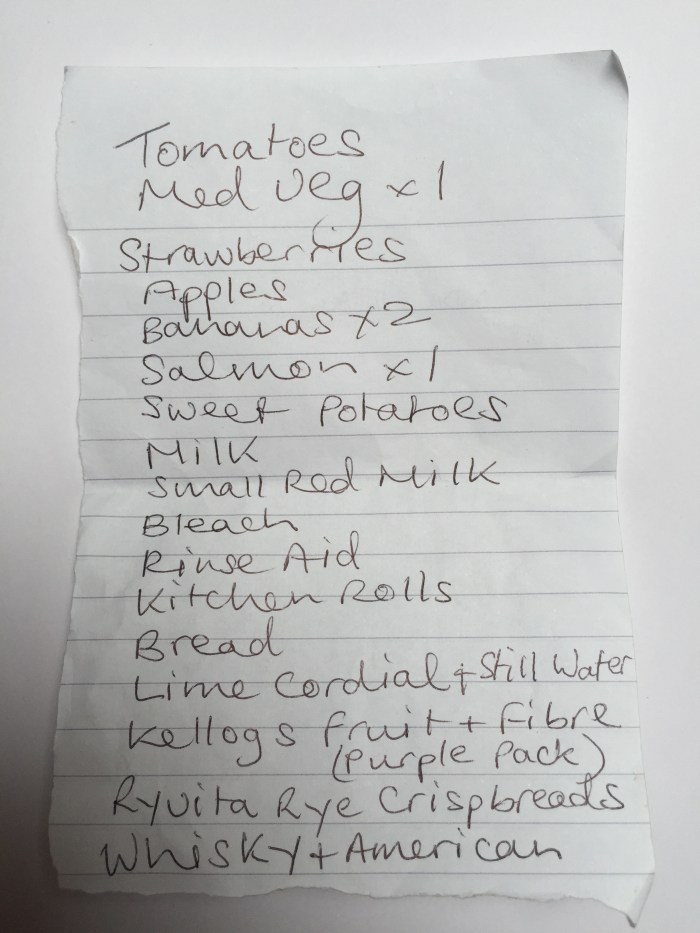 Tomatoes
Med Veg x 1
Strawberries
Apples
Bananas x2
Salmon x1
Sweet Potatoes
Milk
Small Red Milk
Bleach
Rinse Aid
Kitchen Rolls
Bread
Lime Cordial + Still Water
Kellogs Fruit + Fibre
(Purple Pack)
Ryvita Rye Crispbreads
Whisky + American